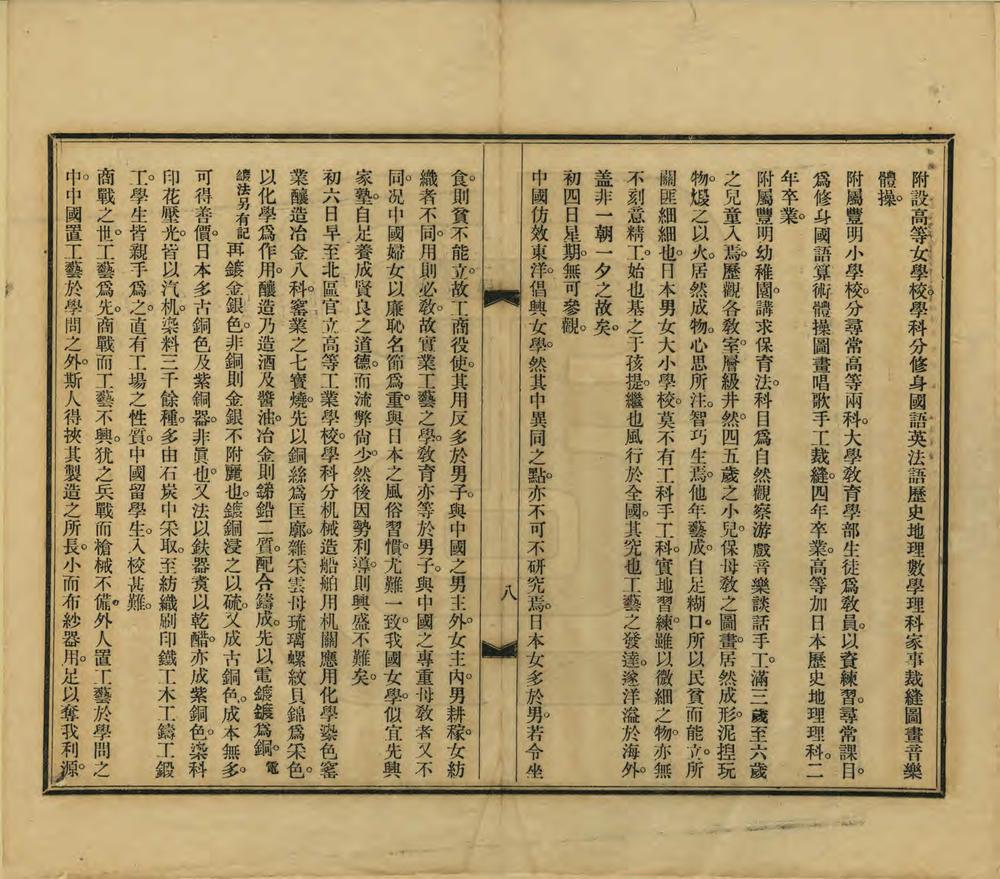 附設高等女學校。學科分修身國語英法語歷史地理數學理科家事裁縫圖畫音樂
體操。
附屬豐明小學校。分尋常高等兩科。大學敎育學部生徒爲敎員。以資練習。尋常課目。
爲修身國語算術體操圖畫唱歌手工裁縫。四年卒業。高等加日本歷史地理理科。二
年卒業。
附屬豐明幼稚園。講求保育法。科目爲自然觀察游戲音樂談話手工。滿三歲至六歲
之兒童入焉。歷觀各敎室。層級井然。四五歲之小兒。保母敎之圖畫。居然成形。泥揑玩
物。煅之以火。居然成物。心思所注。智巧生焉。他年藝成。自足糊口。所以民貧而能立。所
關匪細細也。日本男女大小學校。莫不有工科手工科。實地習練。雖以微細之物。亦無
不刻意精工。始也基之于孩提。繼也風行於全國。其究也工藝之發達。遂洋溢於海外。
盖非一朝一夕之故矣。
初四日星期。無可參觀。
中國仿效東洋。倡興女學。然其中異同之點。亦不可不研究焉。日本女多於男。若令坐
八
食。則貧不能立。故工商役使。其用反多於男子。與中國之男主外。女主內。男耕稼。女紡
織者不同。用則必敎。故實業工藝之學。敎育亦等於男子。與中國之專重母敎者又不
同。况中國婦女以廉恥名節爲重。與日本之風俗習慣。尤難一致。我國女學。似宜先興
家塾。自足養成賢良之道德。而流弊尙少。然後因勢利導。則興盛不難矣。
初六日早至北區官立高等工業學校。學科分机械造船舶用机關應用化學染色窰
業釀造冶金八科。窰業之七寶燒。先以銅絲爲匡廓。雜采雲母琉璃螺紋貝錦爲采色。
以化學爲作用。釀造乃造酒及醬油。冶金則銻鉛二質。配合鑄成。先以電鍍鍍爲銅。電
鍍法另有記再鍍金銀色。非銅則金銀不附麗也。鍍銅浸之以硫。又成古銅色。成本無多。
可得善價。日本多古銅色及紫銅器。非眞也。又法以鈇器煑以乾醋。亦成紫銅色。染科
印花壓光。皆以汽机。染料三千餘種。多由石炭中采取。至紡織刷印鐵工木工鑄工鍛
工。學生皆親手爲之。直有工場之性質。中國留學生。入校甚難。
商戰之世。工藝爲先。商戰而工藝不興。犹之兵戰而槍械不備。外人置工藝於學問之
中。中國置工藝於學問之外。斯人得挾其製造之所長。小而布紗器用。足以奪我利源。